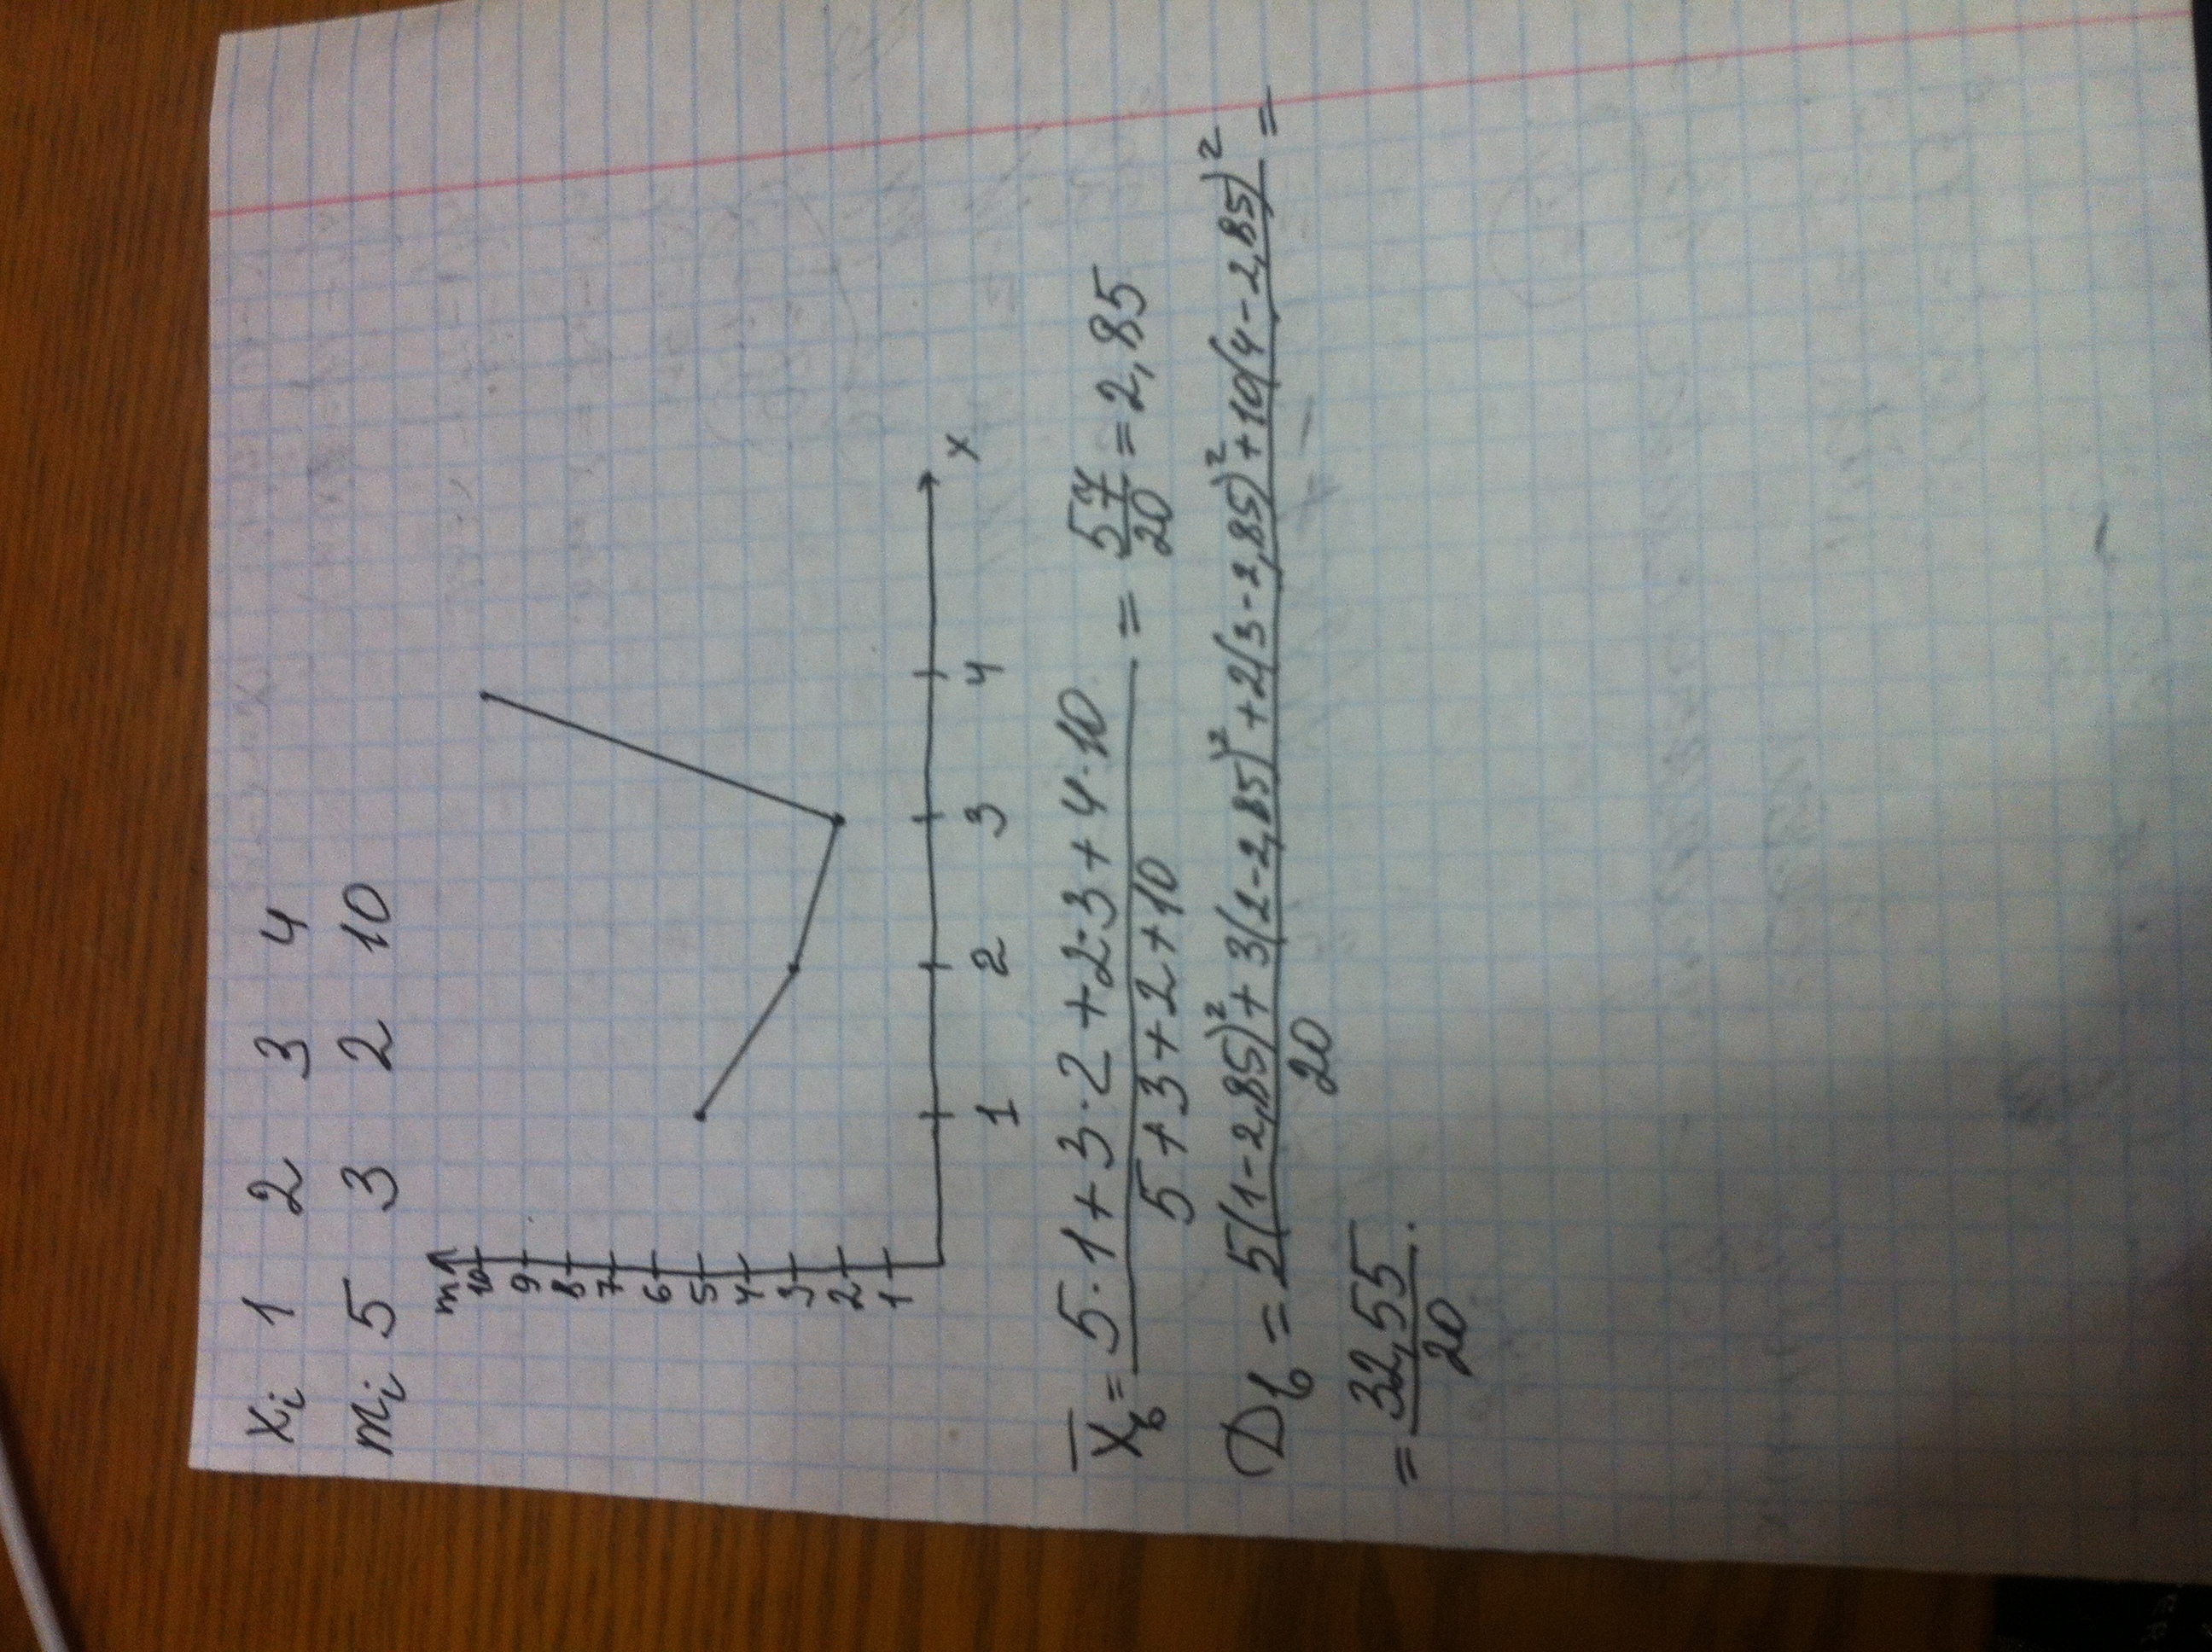 xᵢ 1 2 3 4
mᵢ 5 3 2 10
m
10
9
8
7
6
5
4
3
2
1
1 2 3 4 x
x̄_в = (5·1+3·2+2·3+4·10)/(5+3+2+10) = 57/20 = 2,85
D_в = (5(1-2,85)²+3(2-2,85)²+2(3-2,85)²+10(4-2,85)²)/20 =
= 32,55/20.